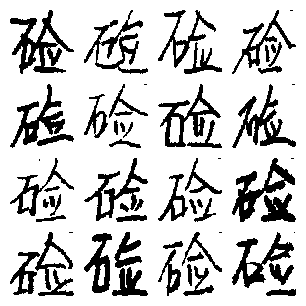 硷硷硷硷
硷硷硷硷
硷硷硷硷
硷硷硷硷